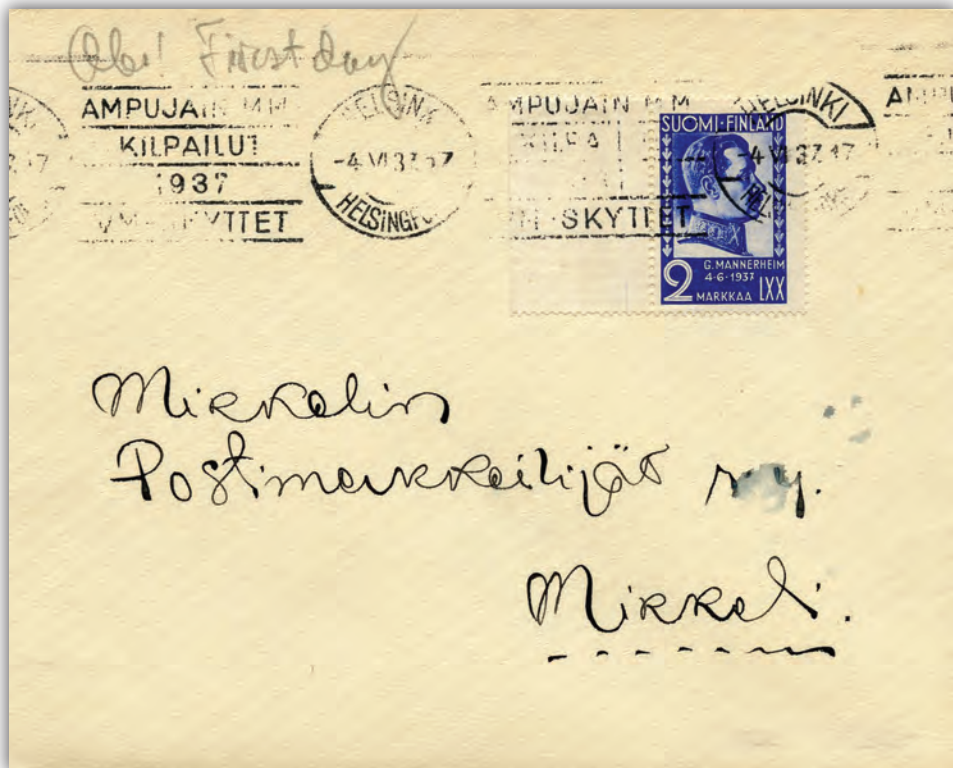 Obs! First day
AMPUJAIN MM
KILPAILUT
1937
SKYTTET
HELSINKI
-4.VI.37.17
HELSINGFORS
AMPUJAIN MM
KILPA
SKYTTET
HELSINKI
-4.VI.37.17
SUOMI-FINLAND
G. MANNERHEIM
4·6·1937
2 MARKKAA LXX
Mikkelin
Postimerkkeilijät r.y.
Mikkeli.